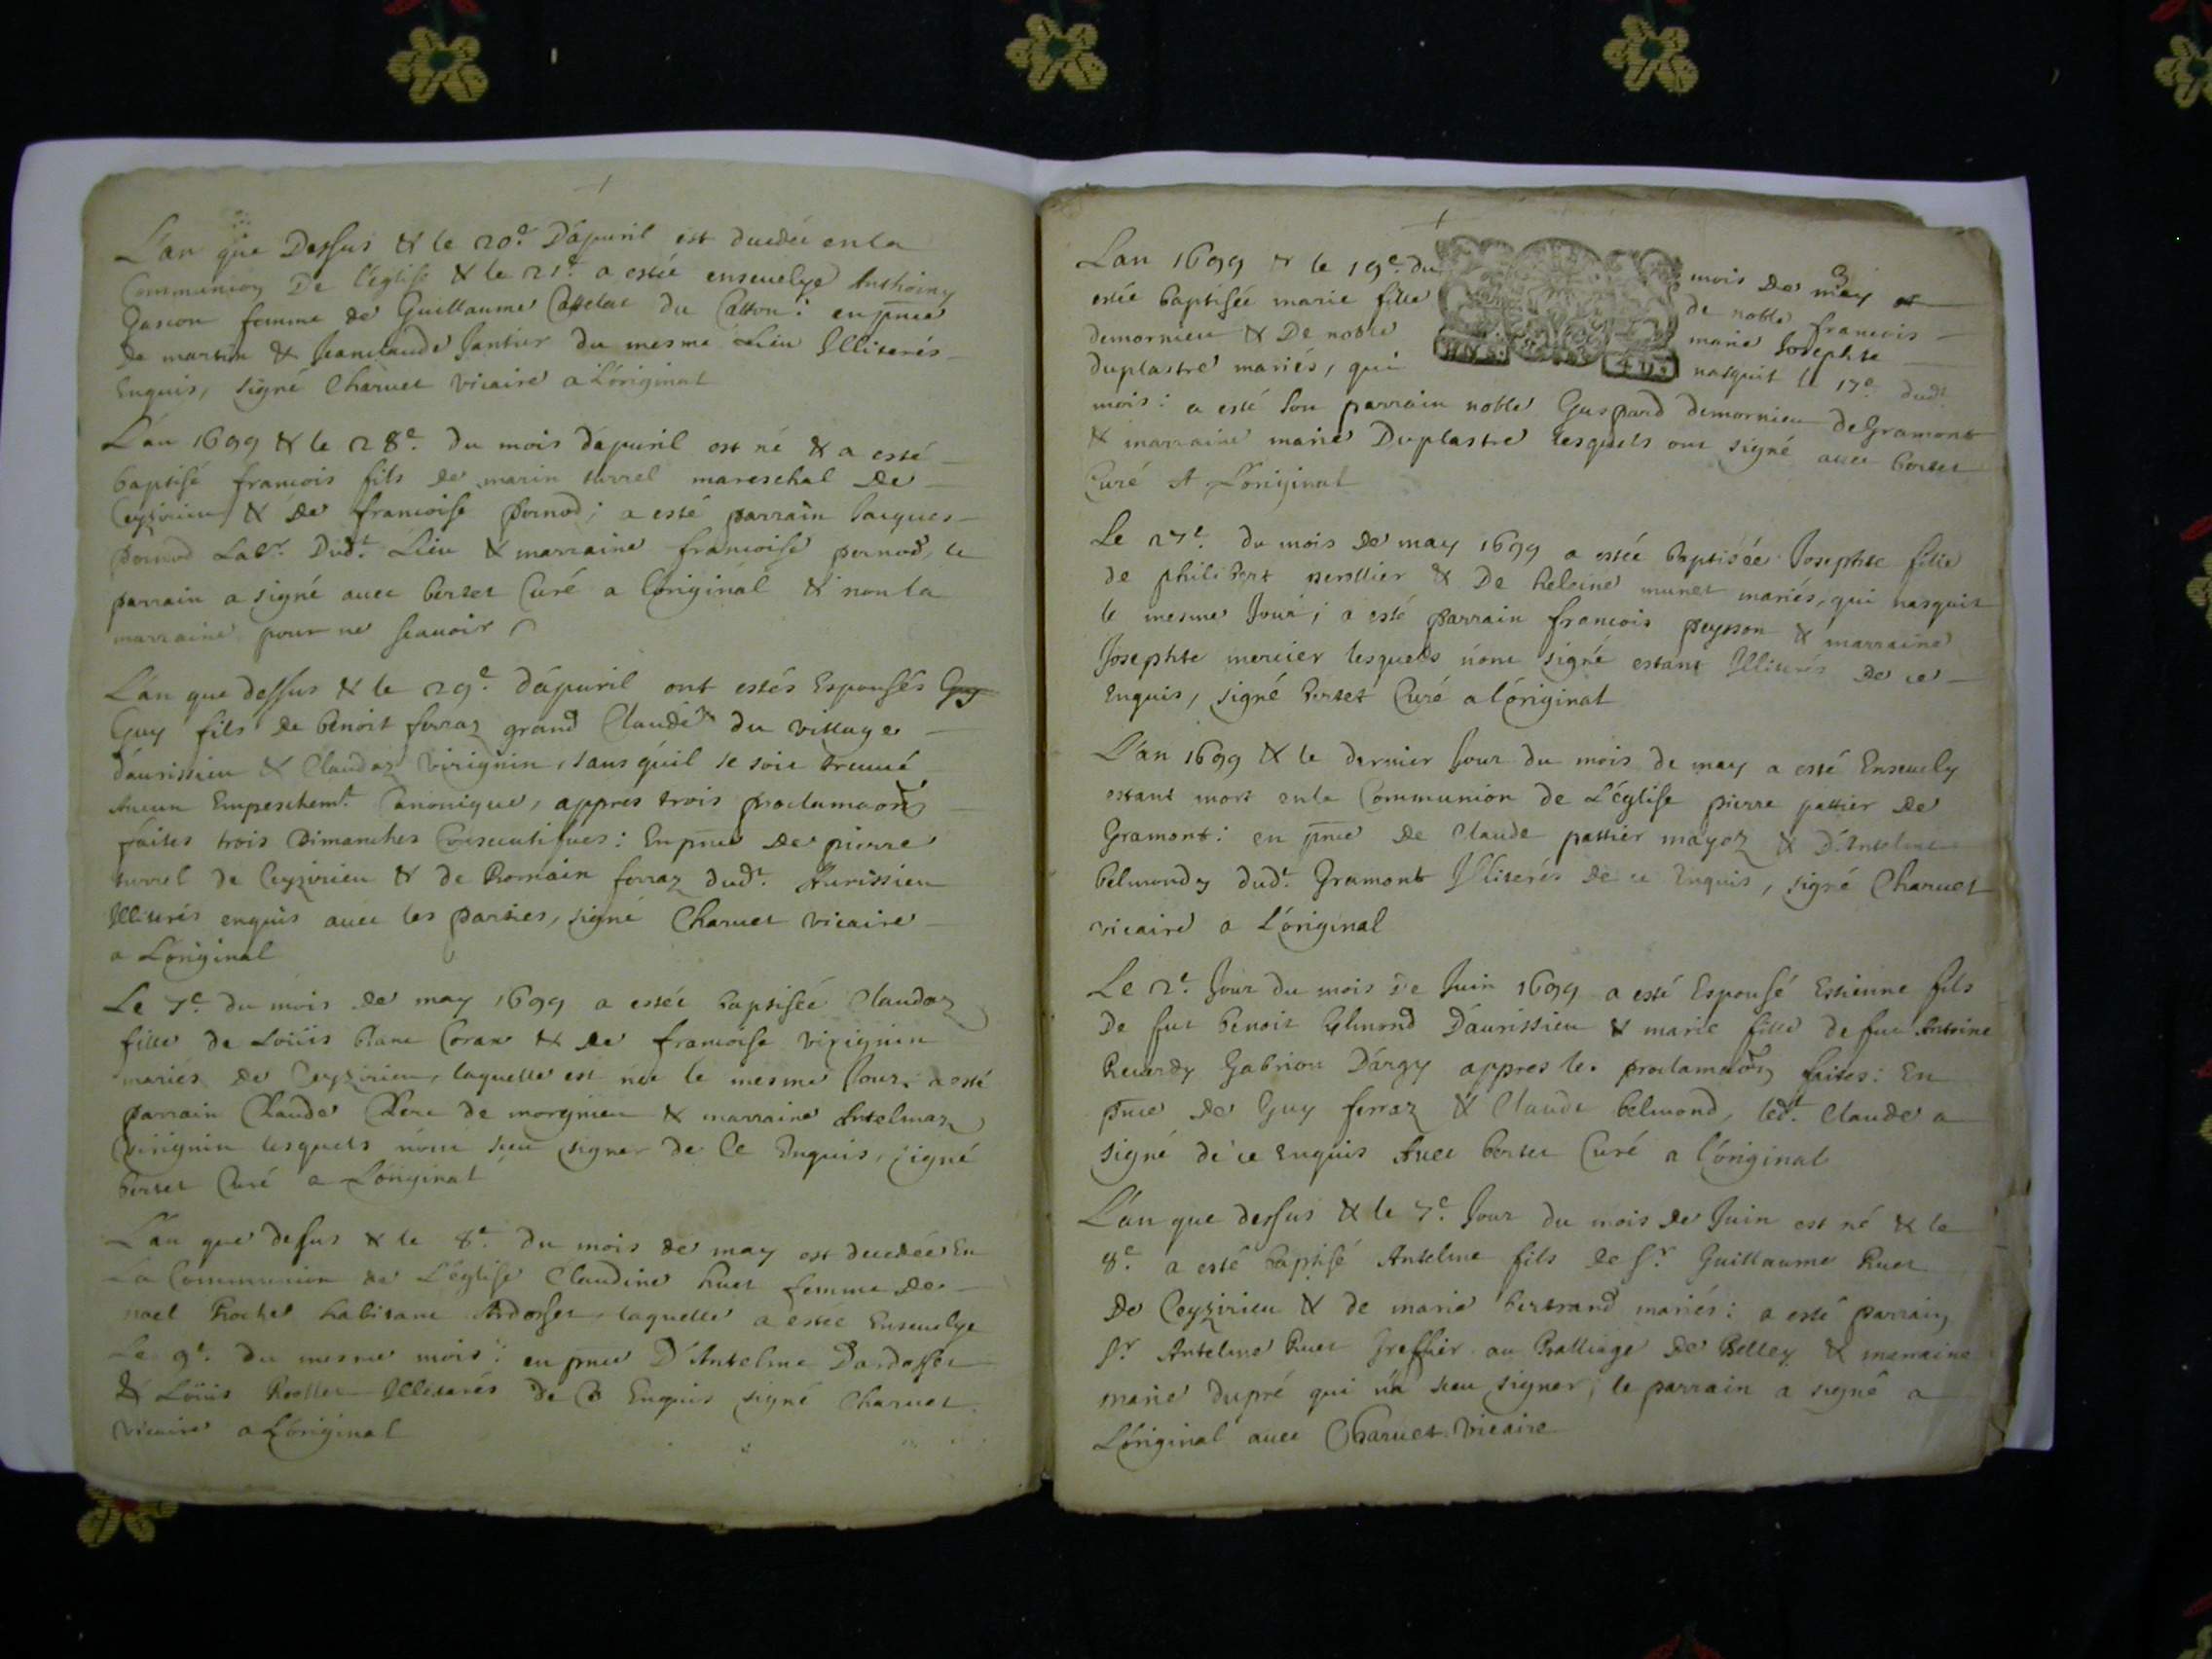 L'an que Dessus & le 20e D'apuril est decedée en la
Communion De l'église & le 21e a estée enseuelye Anthoiny
femme de Guillaume du Catton: en pnce
De martin & Jeanclaude Jantier du mesme Lieu Illiterés
Enquis, signé Charuet vicaire a L'original
L'an 1699 & le 28e du mois d'apuril est né & a esté
baptisé francois fils de marin turrel mareschal de
Ceyzirieu & de francoise pornod; a esté parrain Jacques
pornod Labr Dudt Lieu & marraine francoise pernod, le
parrain a signé auec bertet Curé a l'original & non la
marraine pour ne scauoir
L'an que dessus & le 29e d'apuril ont estés Espousés
Guy fils de benoit ferraz grand Claude du village
d'aurissieu & Claudaz virignin, sans qu'il se soit treuué
Aucun Empeschemt Canonique, appres trois proclamaons
faites trois Dimanches Consecutifues: En pnce de pierre
turrel de Ceyzirieu & de Romain ferraz dudt Aurissieu
Illiterés enquis auec les parties, signé Charuet vicaire
a L'original
Le 7e du mois de may 1699 a estée baptisée Claudaz
fille de Loüis blanc & de francoise virignin
mariés de Ceyzirieu, laquelle est née le mesme Jour, a esté
parrain Claude Clerc de morgnieu & marraine Antelmaz
virignin lesquels n'ont sceu signer de Ce Enquis, signé
bertet Curé a L'original
L'an que desus & le 8e du mois de may est decedée En
La Communion de L'église Claudine huet femme de
noel habitant Ardosset, laquelle a estée Enseuelye
Le 9e du mesme mois: en pnce D'Antelme Dardosset
& Loüis Illiterés De Ce Enquis signé Charuet
vicaire a L'original
L'an 1699 & le 19e du mois de may a
estée baptisée marie fille de noble francois
demornieu & De noble marie Josephte
duplastre mariés, qui nasquit le 17e dudt
mois: a esté son parrain noble Guspard demornieu de Gramont
& marraine marie Duplastre lesquels ont signé auec bertet
Curé A L'original
Le 27e du mois de may 1699 a estée baptisée Josephte fille
de philibert & De heleine munet mariés, qui nasquit
le mesme Jour; a esté parrain francois peysson & marraine
Josephte mercier lesquels n'ont signé estant Illiterés De ce
Enquis, signé bertet Curé a l'original
L'an 1699 & le dernier Jour du mois de may a esté Enseuely
estant mort en la Communion de L'église pierre pattier de
Gramont: en pnce de Claude pattier mayoz & D'Antelme
belmondy dudt Gramont Illiterés De ce Enquis, signé Charuet
vicaire a L'original
Le 2e Jour du mois de Juin 1699 a esté Espousé Estienne fils
De fut benoit belmond D'aurissieu & marie fille de fut Antoine
Reuerdy Gabrion D'argy appres les proclamaons faites: En
pnce de Guy ferraz & Claude belmond, ledt Claude a
signé de ce Enquis Auec bertet Curé a l'original
L'an que dessus & le 7e Jour du mois de Juin est né & le
8e a esté baptisé Antelme fils de Sr Guillaume huet
De Ceyzirieu & de marie bertrand mariés: a esté parrain
Sr Antelme huet Greffier au Balliage de Belley & marraine
marie dupré qui n'a sceu signer, le parrain a signé a
L'original auec Charuet vicaire